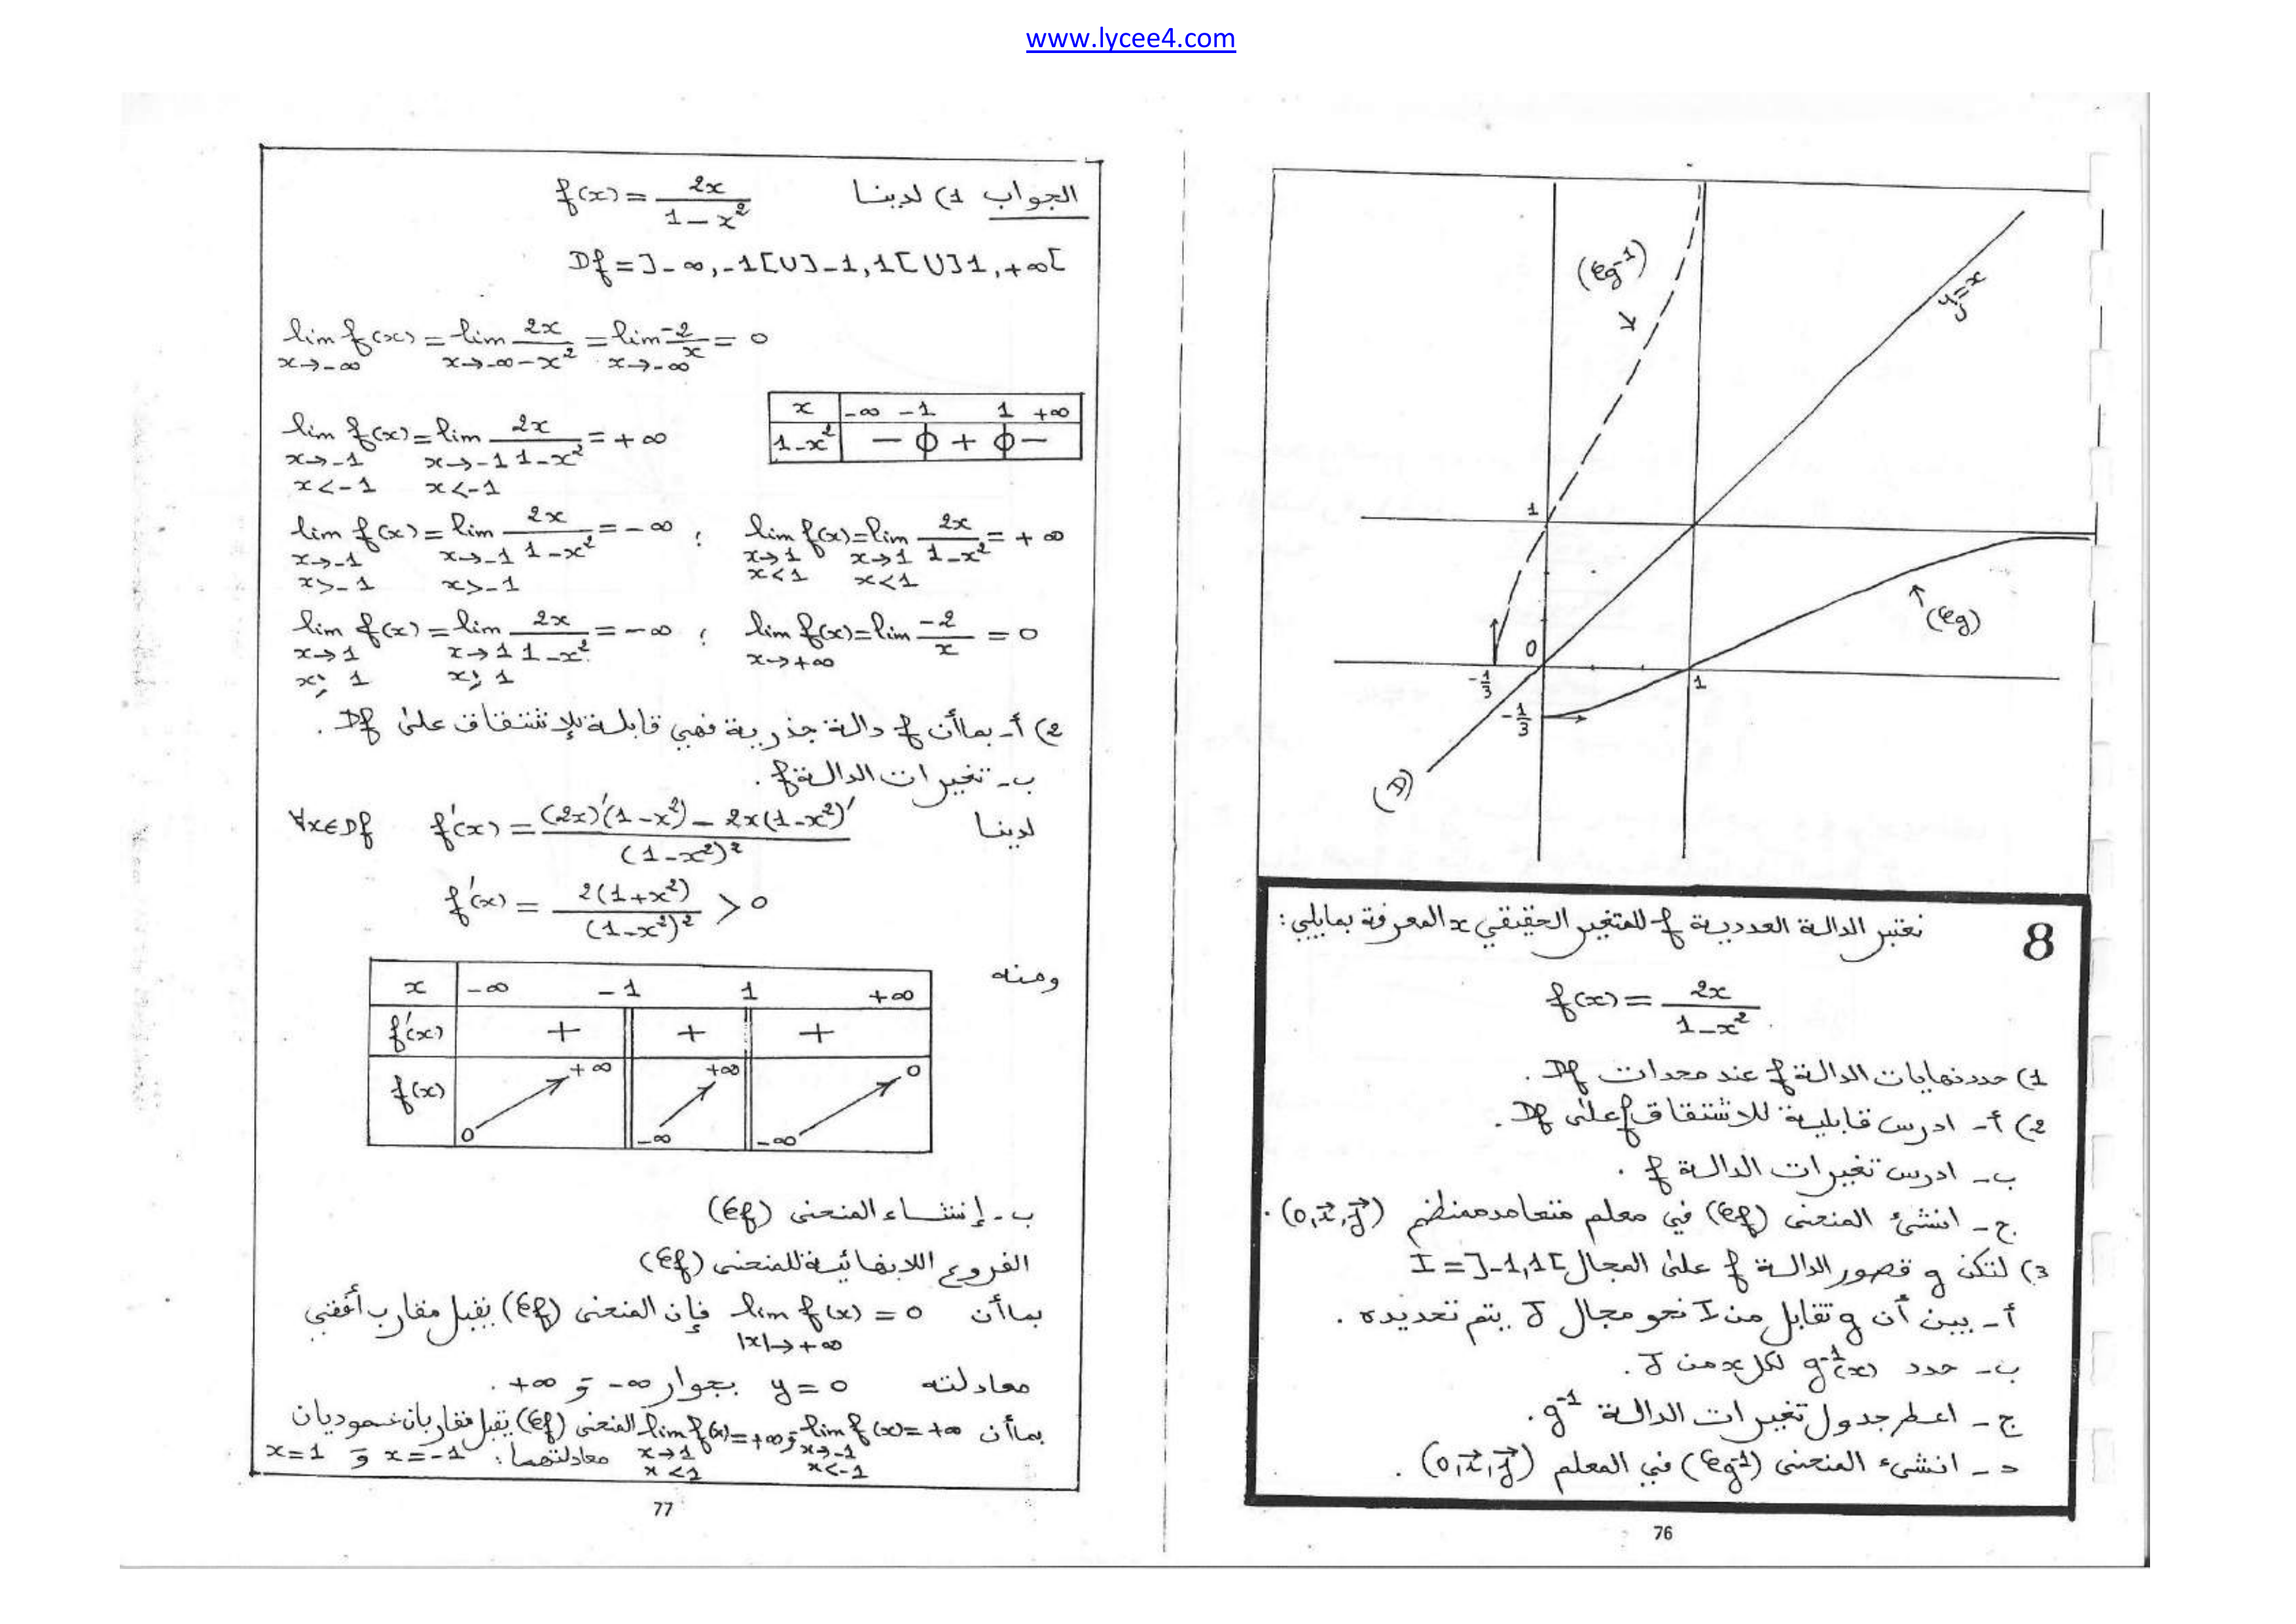 www.lycee4.com
(ℰg⁻¹)
y=x
1
(ℰg)
0
-1/3
1
-1/3
(D)
8
نعتبر الدالة العددية f للمتغير الحقيقي x المعرفة بمايلي:
f(x) = 2x/(1-x²)
1) حدد نهايات الدالة f عند محدات Df.
2) أ- ادرس قابلية للاشتقاق f على Df.
ب- ادرس تغيرات الدالة f.
ج- انشئ المنحنى (ℰf) في معلم متعامد ممنظم (o,i⃗,j⃗).
3) لتكن g قصور الدالة f على المجال I =]-1,1[
أ- بين أن g تقابل من I نحو مجال J يتم تحديده.
ب- حدد g⁻¹(x) لكل x من J.
ج- اعط جدول تغيرات الدالة g⁻¹.
د- انشىء المنحنى (ℰg⁻¹) في المعلم (o,i⃗,j⃗).
76
الجواب 1) لدينا f(x) = 2x/(1-x²)
Df =]-∞,-1[U]-1,1[U]1,+∞[
lim f(x) = lim 2x/-x² = lim -2/x = 0
x→-∞ x→-∞ x→-∞
x -∞ -1 1 +∞
1-x² - 0 + 0 -
lim f(x) = lim 2x/(1-x²) = +∞
x→-1 x→-1
x<-1 x<-1
lim f(x) = lim 2x/(1-x²) = -∞ ; lim f(x) = lim 2x/(1-x²) = +∞
x→-1 x→-1 x→1 x→1
x>-1 x>-1 x<1 x<1
lim f(x) = lim 2x/(1-x²) = -∞ ; lim f(x) = lim -2/x = 0
x→1 x→1 x→+∞
x> 1 x> 1
2) أ- بما أن f دالة جذرية فهي قابلة للإشتقاق على Df.
ب- تغيرات الدالة f.
لدينا f'(x) = ((2x)'(1-x²) - 2x(1-x²)')/(1-x²)² ∀x∈Df
f'(x) = 2(1+x²)/(1-x²)² > 0
ومنه
x -∞ -1 1 +∞
f'(x) + + +
f(x) 0 +∞ -∞ +∞ -∞ 0
ب- إنشاء المنحنى (ℰf)
الفروع اللانهائية للمنحنى (ℰf)
بما أن lim f(x) = 0 فإن المنحنى (ℰf) يقبل مقارب أفقي
|x|→+∞
معادلته y = 0 بجوار -∞ و +∞.
بما أن lim f(x) = +∞ و lim f(x) = +∞ المنحنى (ℰf) يقبل مقاربان عموديان
x→-1 x→1
x<-1 x<1
معادلتهما: x=-1 و x=1
77